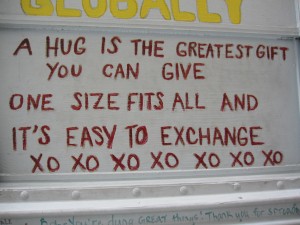 GLOBALLY
A HUG IS THE GREATEST GIFT
YOU CAN GIVE
ONE SIZE FITS ALL AND
IT'S EASY TO EXCHANGE
XO XO XO XO XO XO XO
You're doing GREAT things! Thank you for